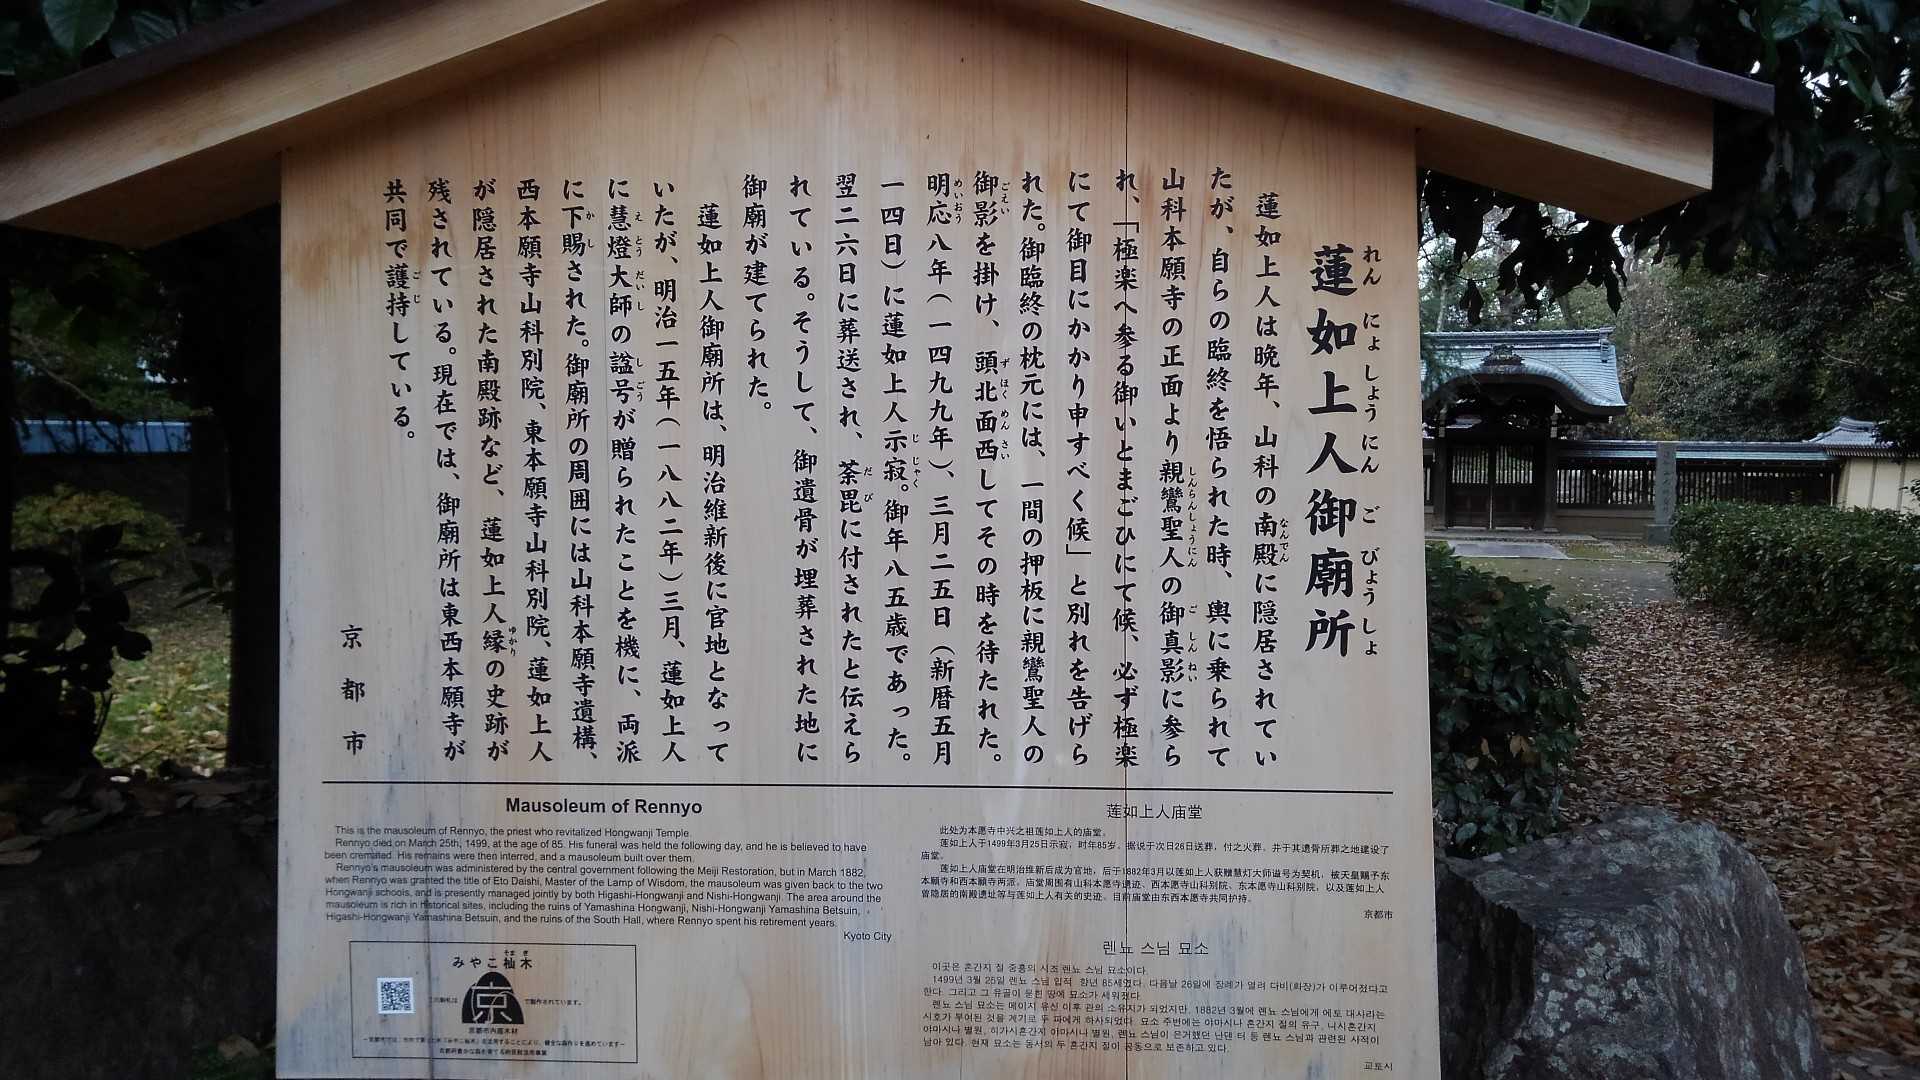 蓮如上人御廟所
れんにょしょうにんごびょうしょ
蓮如上人は晩年、山科の南殿に隠居されてい
たが、自らの臨終を悟られた時、輿に乗られて
山科本願寺の正面より親鸞聖人の御真影に参ら
れ、「極楽へ参る御いとまごひにて候、必ず極楽
にて御目にかかり申すべく候」と別れを告げら
れた。御臨終の枕元には、一間の押板に親鸞聖人の
御影を掛け、頭北面西してその時を待たれた。
明応八年(一四九九年)、三月二五日(新暦五月
一四日)に蓮如上人示寂。御年八五歳であった。
翌二六日に葬送され、荼毘に付されたと伝えら
れている。そうして、御遺骨が埋葬された地に
御廟が建てられた。
蓮如上人御廟所は、明治維新後に官地となって
いたが、明治一五年(一八八二年)三月、蓮如上人
に慧燈大師の諡号が贈られたことを機に、両派
に下賜された。御廟所の周囲には山科本願寺遺構、
西本願寺山科別院、東本願寺山科別院、蓮如上人
が隠居された南殿跡など、蓮如上人縁の史跡が
残されている。現在では、御廟所は東西本願寺が
共同で護持している。
京都市
Mausoleum of Rennyo
This is the mausoleum of Rennyo, the priest who revitalized Hongwanji Temple.
Rennyo died on March 25th, 1499, at the age of 85. His funeral was held the following day, and he is believed to have
been cremated. His remains were then interred, and a mausoleum built over them.
Rennyo's mausoleum was administered by the central government following the Meiji Restoration, but in March 1882,
when Rennyo was granted the title of Eto Daishi, Master of the Lamp of Wisdom, the mausoleum was given back to the two
Hongwanji schools, and is presently managed jointly by both Higashi-Hongwanji and Nishi-Hongwanji. The area around the
mausoleum is rich in historical sites, including the ruins of Yamashina Hongwanji, Nishi-Hongwanji Yamashina Betsuin,
Higashi-Hongwanji Yamashina Betsuin, and the ruins of the South Hall, where Rennyo spent his retirement years.
Kyoto City
みやこ杣木
そまぎ
この駒札は
京
で製作されています。
京都市内産木材
莲如上人庙堂
此处为本愿寺中兴之祖莲如上人的庙堂。
莲如上人于1499年3月25日示寂，时年85岁。据说于次日26日送葬，付之火葬。并于其遗骨所葬之地建设了
庙堂。
莲如上人庙堂在明治维新后成为官地，后于1882年3月以莲如上人获赠慧灯大师谥号为契机，被天皇赐予东
本願寺和西本願寺两派。庙堂周围有山科本愿寺遗迹、西本愿寺山科别院、东本愿寺山科别院，以及莲如上人
曾隐居的南殿遗址等与莲如上人有关的史迹。目前庙堂由东西本愿寺共同护持。
京都市
렌뇨 스님 묘소
이곳은 혼간지 절 중흥의 시조 렌뇨 스님 묘소이다.
1499년 3월 25일 렌뇨 스님 입적. 향년 85세였다. 다음날 26일에 장례가 열려 다비(화장)가 이루어졌다고
한다. 그리고 그 유골이 묻힌 땅에 묘소가 세워졌다.
렌뇨 스님 묘소는 메이지 유신 이후 관의 소유지가 되었지만, 1882년 3월에 렌뇨 스님에게 에토 대사라는
시호가 부여된 것을 계기로 두 파에게 하사되었다. 묘소 주변에는 야마시나 혼간지 절의 유구, 니시혼간지
야마시나 별원, 히가시혼간지 야마시나 별원, 렌뇨 스님이 은거했던 난덴 터 등 렌뇨 스님과 관련된 사적이
남아 있다. 현재 묘소는 동서의 두 혼간지 절이 공동으로 보존하고 있다.
교토시